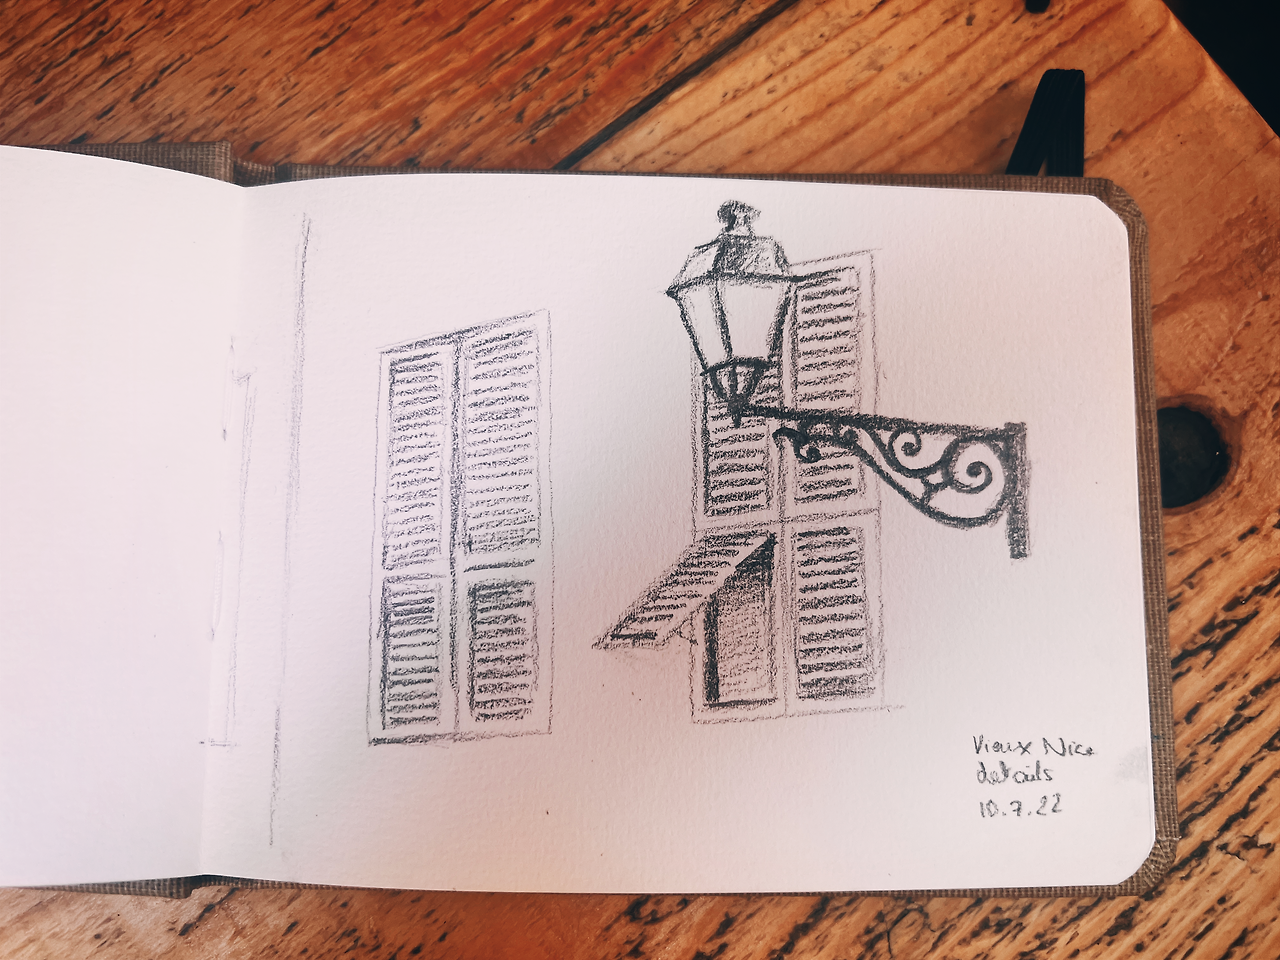 Vieux Nice
details
10.7.22